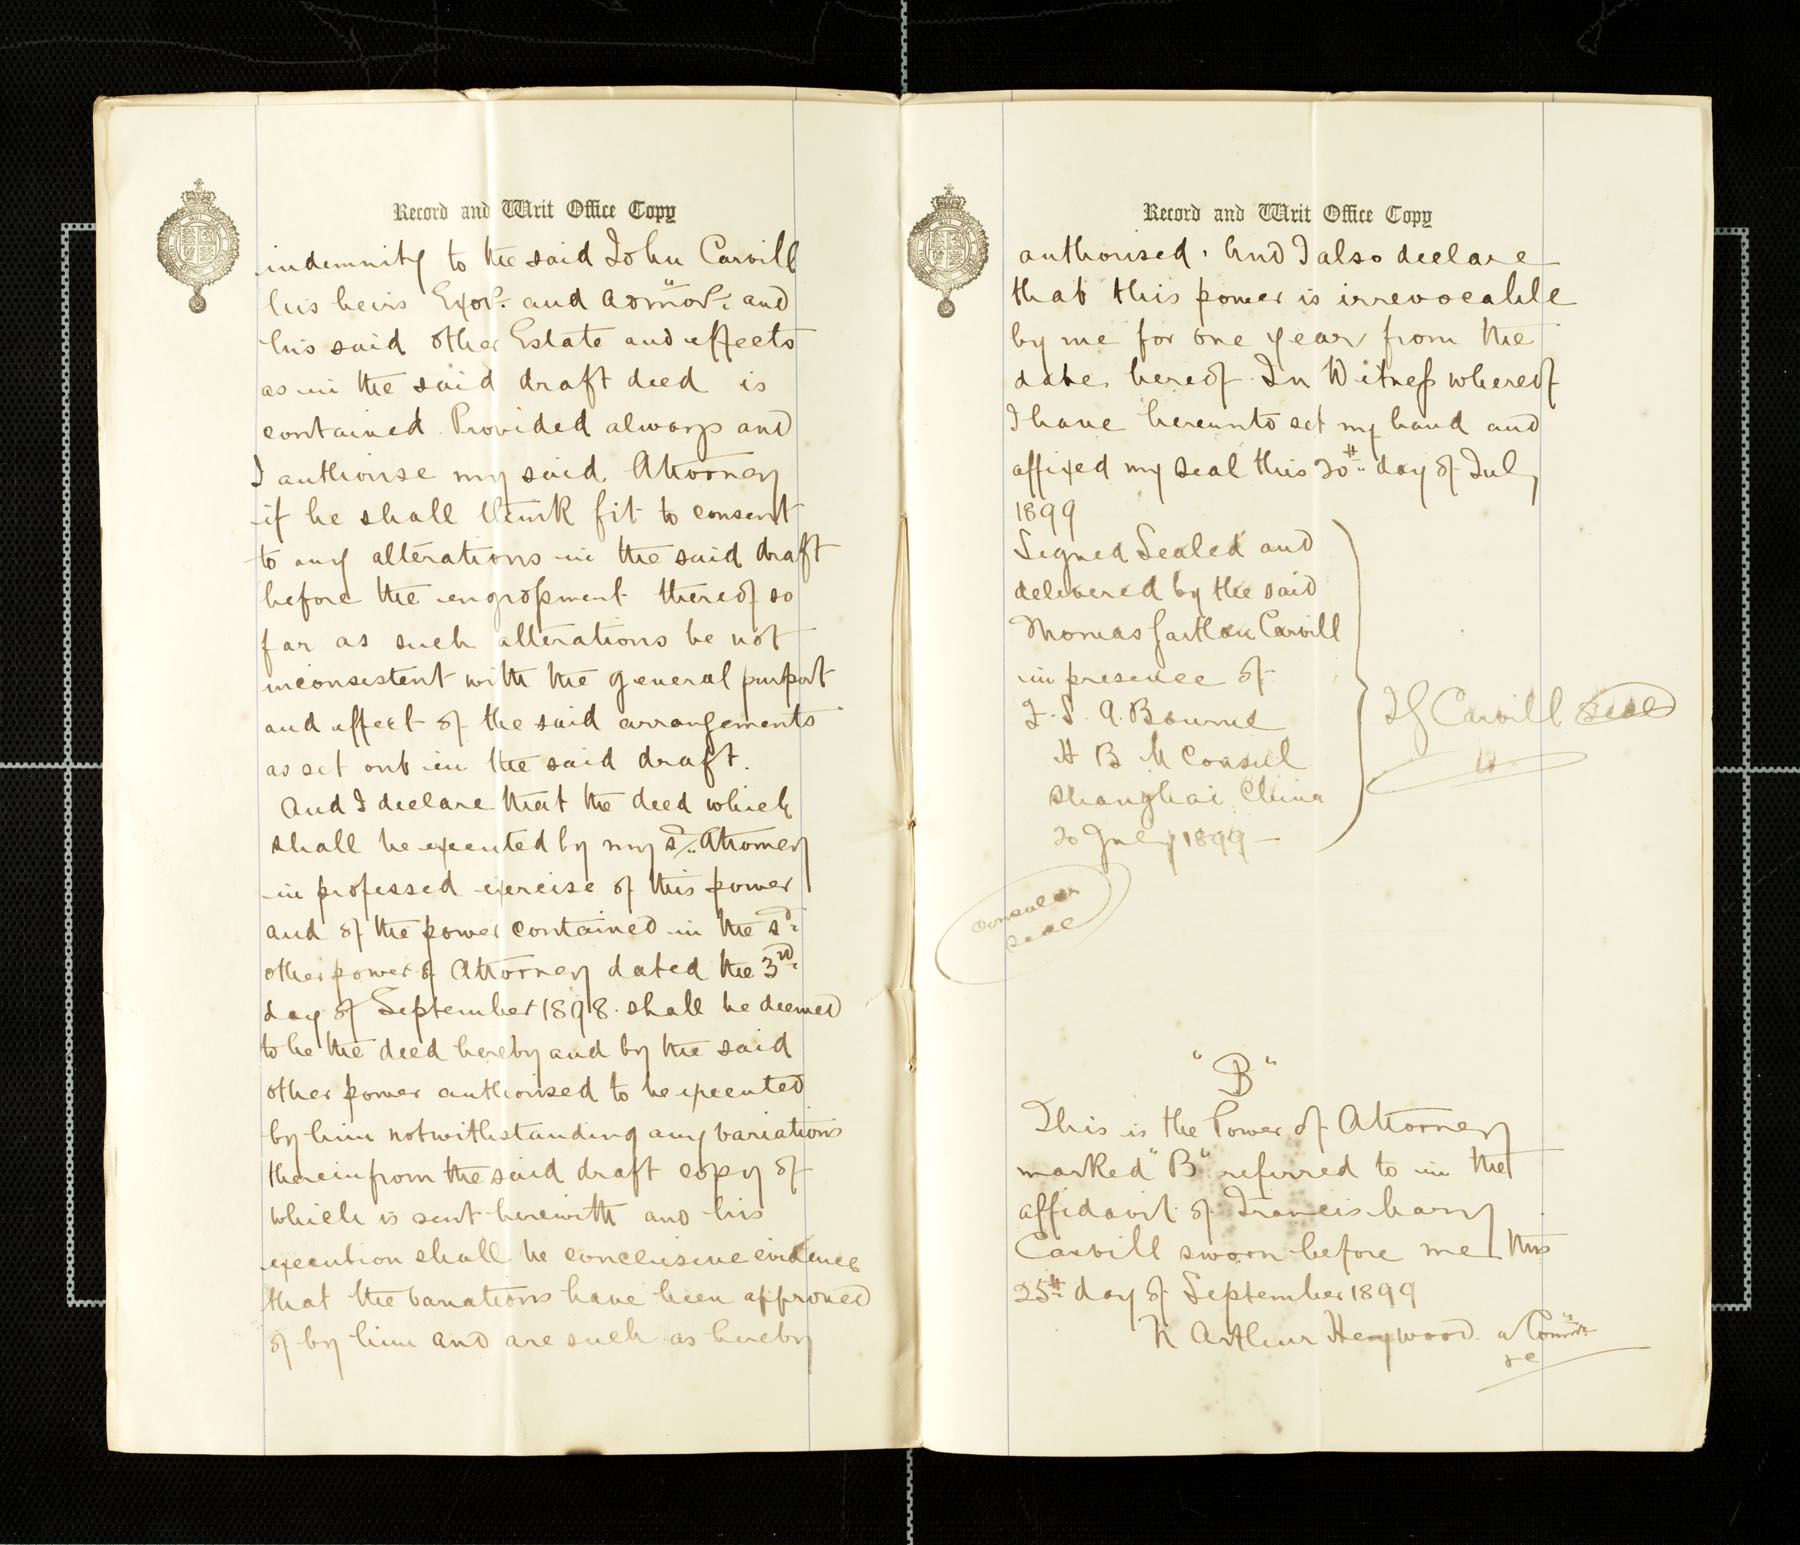 Record and Writ Office Copy
indemnity to the said John Carvill
his heirs Exors. and admors. and
his said other Estate and effects
as in the said draft deed is
contained. Provided always and
I authorise my said Attorney
if he shall think fit to consent
to any alterations in the said draft
before the engrossment thereof so
far as such alterations be not
inconsistent with the general purport
and effect of the said arrangements
as set out in the said draft.
And I declare that the deed which
shall be executed by my sd. Attorney
in professed exercise of this power
and of the power contained in the sd.
other power of Attorney dated the 3rd.
day of September 1898. shall be deemed
to be the deed hereby and by the said
other power authorised to be executed
by him notwithstanding any variations
therein from the said draft copy of
which is sent herewith and his
execution shall be conclusive evidence
that the variations have been approved
of by him and are such as hereby
Record and Writ Office Copy
authorised. And I also declare
that this power is irrevocable
by me for one year from the
date hereof. In Witness whereof
I have hereunto set my hand and
affixed my seal this 20th. day of July
1899
Signed Sealed and
delivered by the said
Thomas Gartlan Carvill
in presence of
F. S. A. Bourne
H B M Consul
Shanghai China
20 July 1899 —
T G Carvill Seal
Consular
Seal
"B"
This is the Power of Attorney
marked "B" referred to in the
affidavit of Francis
Carvill sworn before me this
25th. day of September 1899
N Arthur Heywood a Commr.
&c